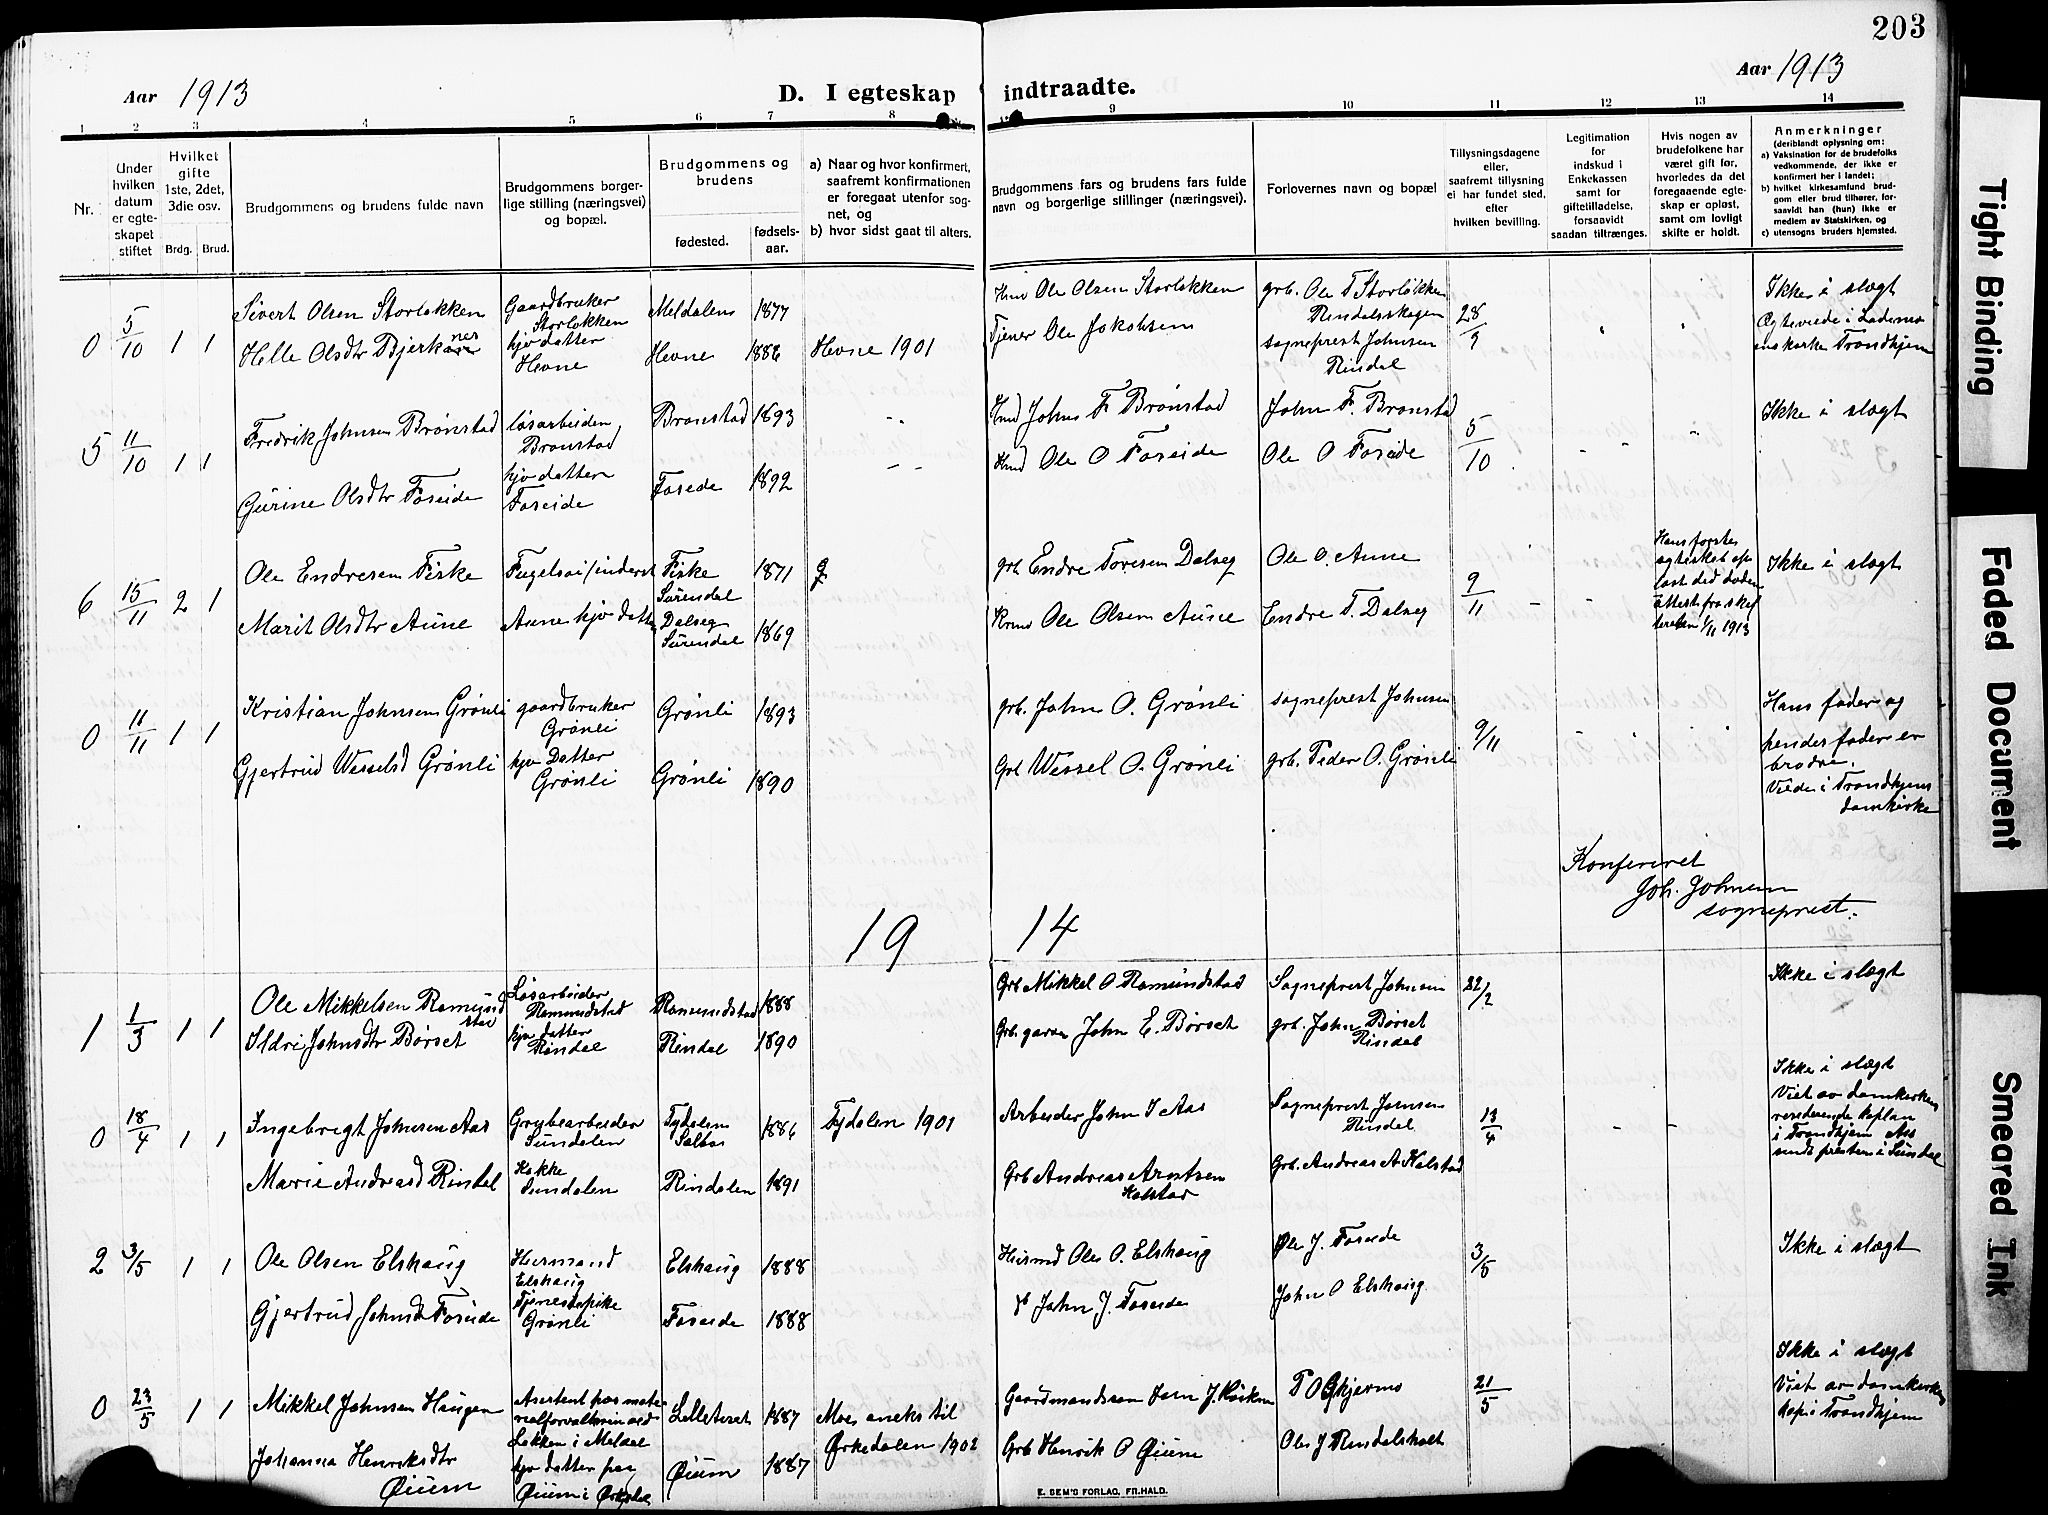 203
Aar 1913
D. I egteskap indtraadte.
Aar 1913
1 2 3 4 5 6 7 8 9 10 11 12 13 14
Nr.
Under hvilken datum er egteskapet stiftet
Hvilket gifte 1ste, 2det, 3die osv.
Brdg. Brud.
Brudgommens og brudens fulde navn
Brudgommens borgerlige stilling (næringsvei) og bopæl.
Brudgommens og brudens
fødested.
fødselsaar.
a) Naar og hvor konfirmert, saafremt konfirmationen er foregaat utenfor sognet, og
b) hvor sidst gaat til alters.
Brudgommens fars og brudens fars fulde navn og borgerlige stillinger (næringsvei).
Forlovernes navn og bopæl
Tillysningsdagene eller, saafremt tillysning ei har fundet sled, efter hvilken bevilling.
Legitimation for indskud i Enkekassen samt for giftetilladelse, forsaavidt saadan tiltrænges.
Hvis nogen av brudefolkene har været gift før, hvorledes da det foregaaende egteskap er opløst, samt om lovligt skifte er holdt.
Anmerkninger (deriblandt oplysning om:
a) Vaksination for de brudefolks vedkommende, der ikke er konfirmert her i landet;
b) hvilket kirkesamfund brudgom eller brud tilhører, forsaavidt han (hun) ikke er medlem av Statskirken, og
c) utensogns bruders hjemsted.
0 5/10 1 1
Sivert Olsen Storløkken
Gaardbruker Storløkken
Meldalen 1877
Hmd Ole Olsen Storløkken
grb. Ole T Storløkken Rindalsskogen
28/9
Ikke i slægt
Helle Olsdtr Bjerkaner
hjv datter Hevne
Hevne 1886
Hevne 1901
Tjener Ole Jakobsen
sogneprest Johnsen Rindal
Trondhjem
5 11/10 1 1
Fredrik Johnsen Brønstad
løsarbeider Brønstad
Brønstad 1893
Hmd John F Brønstad
John F. Brønstad
5/10
Ikke i slægt
Gurine Olsdtr Foseide
hjv datter Foseide
Foseide 1892
Hmd Ole O Foseide
Ole O Foseide
6 15/11 2 1
Ole Endresen Fiske
Fiske Surendal 1871
grb Endre Toresen Dalseg
Ole O. Aune
9/11
Ikke i slægt
Marit Olsdtr Aune
Aune hjv datter
Dalseg Surendal 1869
Ole Olsen Aune
Endre T. Dalseg
1/11 1913
0 11/11 1 1
Kristian Johnsen Grønli
gaardbruker Grønli
Grønli 1893
grb. John O. Grønli
sogneprest Johnsen
9/11
Hans fader og hendes fader er brødre.
Viede i Trondhjems domkirke
Gjertrud Wesselsd Grønli
hjv Datter Grønli
Grønli 1890
Grb Wessel O. Grønli
grb. Peder O. Grønli
Konfereret
Joh. Johnsen
sogneprest.
19 14
1 1/3 1 1
Ole Mikkelsen Romundstad
Løsarbeider Romundstad
Romundstad 1888
Grb Mikkel O Romundstad
Sogneprest Johnsen
22/2
Ikke i slægt
Ildri Johnsdtr Børset
hjv datter Rindal
Rindal 1890
Grb. John E. Børset
grb. John Børset Rindal
0 18/4 1 1
Ingebrigt Johnsen Aas
Grubearbeider Sundalen
Tydalen Selbu 1886
Tydalen 1901
Arbeider John I Aas
Sogneprest Johnsen Rindal
13/4
Ikke i slægt
Viet av domkirkens residerende kaplan i Trondhjem
Marie Andreasd Rindal
Kokke Sundalen
Rindalen 1891
Grb Andreas Arntsen Kalstad
Grb. Andreas A Kalstad
2 3/5 1 1
Ole Olsen Elshaug
Husmand Elshaug
Elshaug 1888
Husmd Ole O. Elshaug
Ole J. Foseide
3/5
Ikke i slægt
Gjertrud Johnsdt Foseide
Tjenestepike Grønli
Foseide 1888
John J. Foseide
John O Elshaug
0 23/5 1 1
Mikkel Johnsen Haugen
Løkken i Meldal
1887
Moe aneks til Ørkedalen 1902
21/5
Ikke i slægt
Viet av domkirkens kap i Trondhjem
Johanna Henriksdtr Øium
hjv datter paa Øium i Ørkedal
Øium 1887
Grb Henrik O Øium
Ole J Rindalsholt
E. SEM'S FORLAG. FR.HALD.
Tight Binding
Faded Document
Smeared Ink